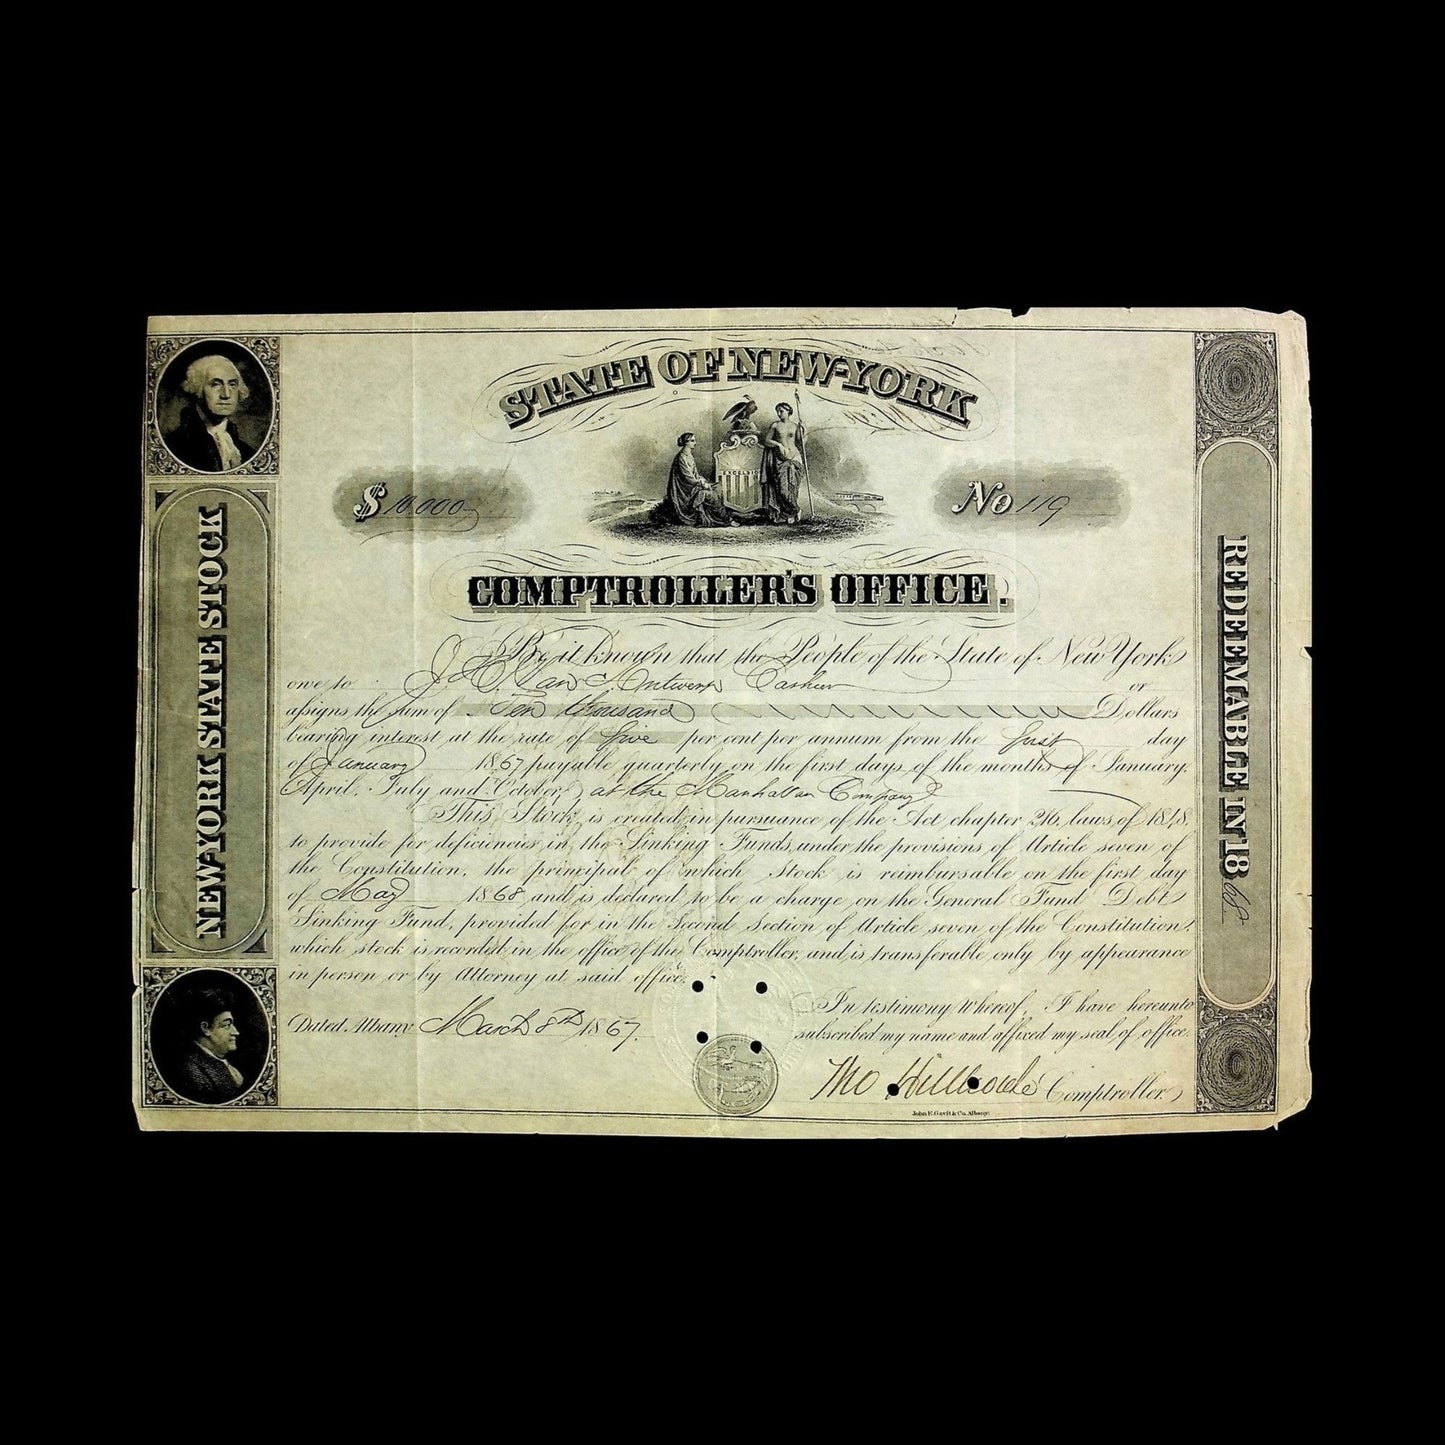 STATE OF NEW-YORK
EXCELSIOR
$ 10.000
No 119
COMPTROLLER'S OFFICE.
NEW-YORK STATE STOCK
REDEEMABLE IN 1868
Be it known that the People of the State of New York
owe to J. H. Van Antwerp Cashier or
assigns the sum of Ten thousand Dollars
bearing interest at the rate of five per cent per annum from the first day
of January 1867 payable quarterly on the first days of the months of January.
April, July and October, at the Manhattan Company
This Stock is created in pursuance of the Act chapter 216, laws of 1848.
to provide for deficiencies in the Sinking Funds, under the provisions of Article seven of
the Constitution, the principal of which stock is reimbursable on the first day
of May 1868 and is declared to be a charge on the General Fund Debt
Sinking Fund, provided for in the Second Section of Article seven of the Constitution,
which stock is recorded in the office of the Comptroller, and is transferable only by appearance
in person or by Attorney at said office.
In testimony whereof, I have hereunto
Dated Albany March 8th 1867.
subscribed my name and affixed my seal of office.
Tho Hillhouse Comptroller
John E. Gavit & Co. Albany.